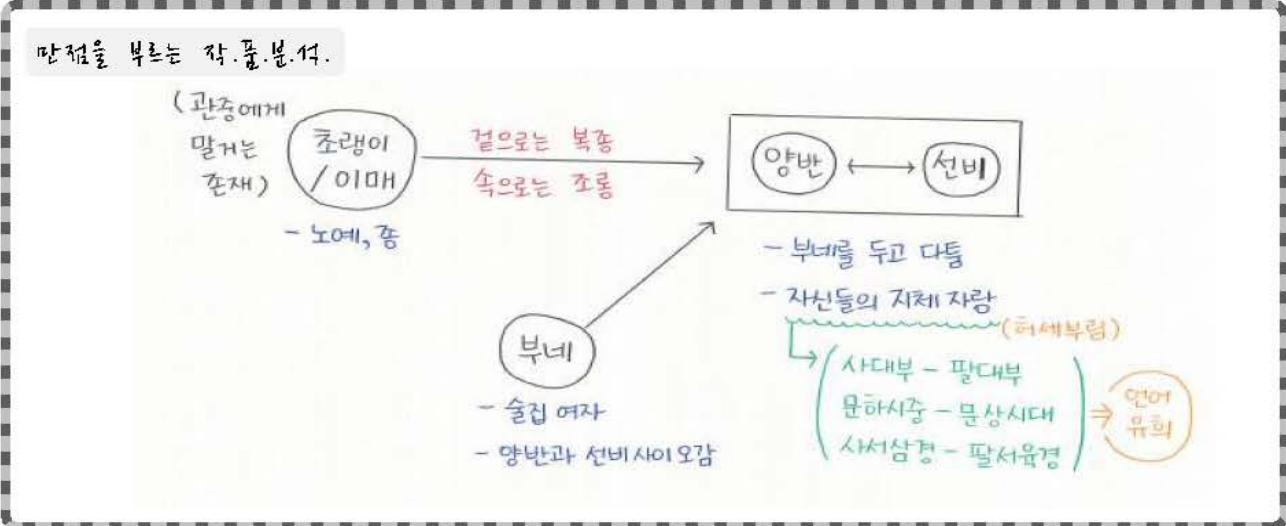 만점을 부르는 작.품.분.석.
(관중에게
말거는
존재)
초랭이
/이매
- 노예, 종
겉으로는 복종
속으로는 조롱
양반 ↔ 선비
- 부네를 두고 다툼
- 자신들의 지체 자랑
(허세부림)
사대부 - 팔대부
문하시중 - 문상시대
사서삼경 - 팔서육경
⇒ 언어
유희
부네
- 술집 여자
- 양반과 선비 사이 오감